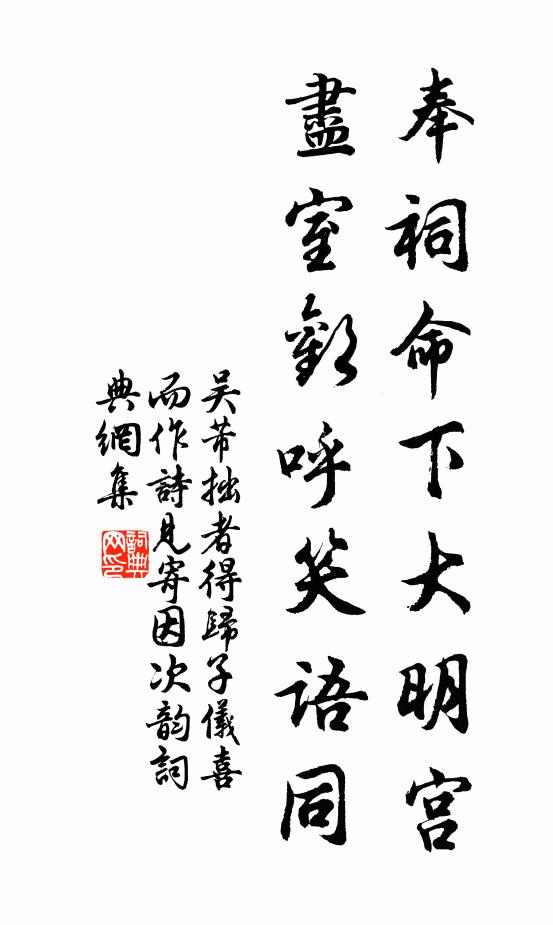 奉祠命下大明宫
盡室歡呼笑語同
吴芾拙者得歸子儀喜
而作詩見寄因次韵詞
典網集
詞典
网印